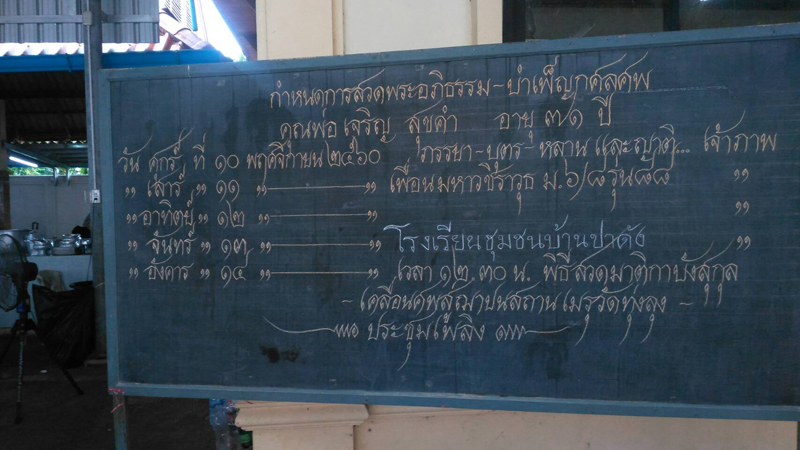 กำหนดการสวดพระอภิธรรม-บำเพ็ญกุศลศพ
คุณพ่อ เจริญ สุขดำ อายุ ๗๑ ปี
วัน ศุกร์ ที่ ๑๐ พฤศจิกายน ๒๕๖๐ ภรรยา-บุตร-หลาน และญาติ... เจ้าภาพ
” เสาร์ ” ๑๑ ” ” เพื่อนมหาวชิราวุธ ม.๖/๘ รุ่น๘๘ ”
” อาทิตย์ ” ๑๒ ” ” ”
” จันทร์ ” ๑๓ ” ” โรงเรียนชุมชนบ้านปาดัง ”
” อังคาร ” ๑๔ ” ” เวลา ๑๒.๓๐ น. พิธีสวดมาติกาบังสุกุล
- เคลื่อนศพสู่ฌาปนสถานเมรุวัดทุ่งลุง -
ประชุมเพลิง